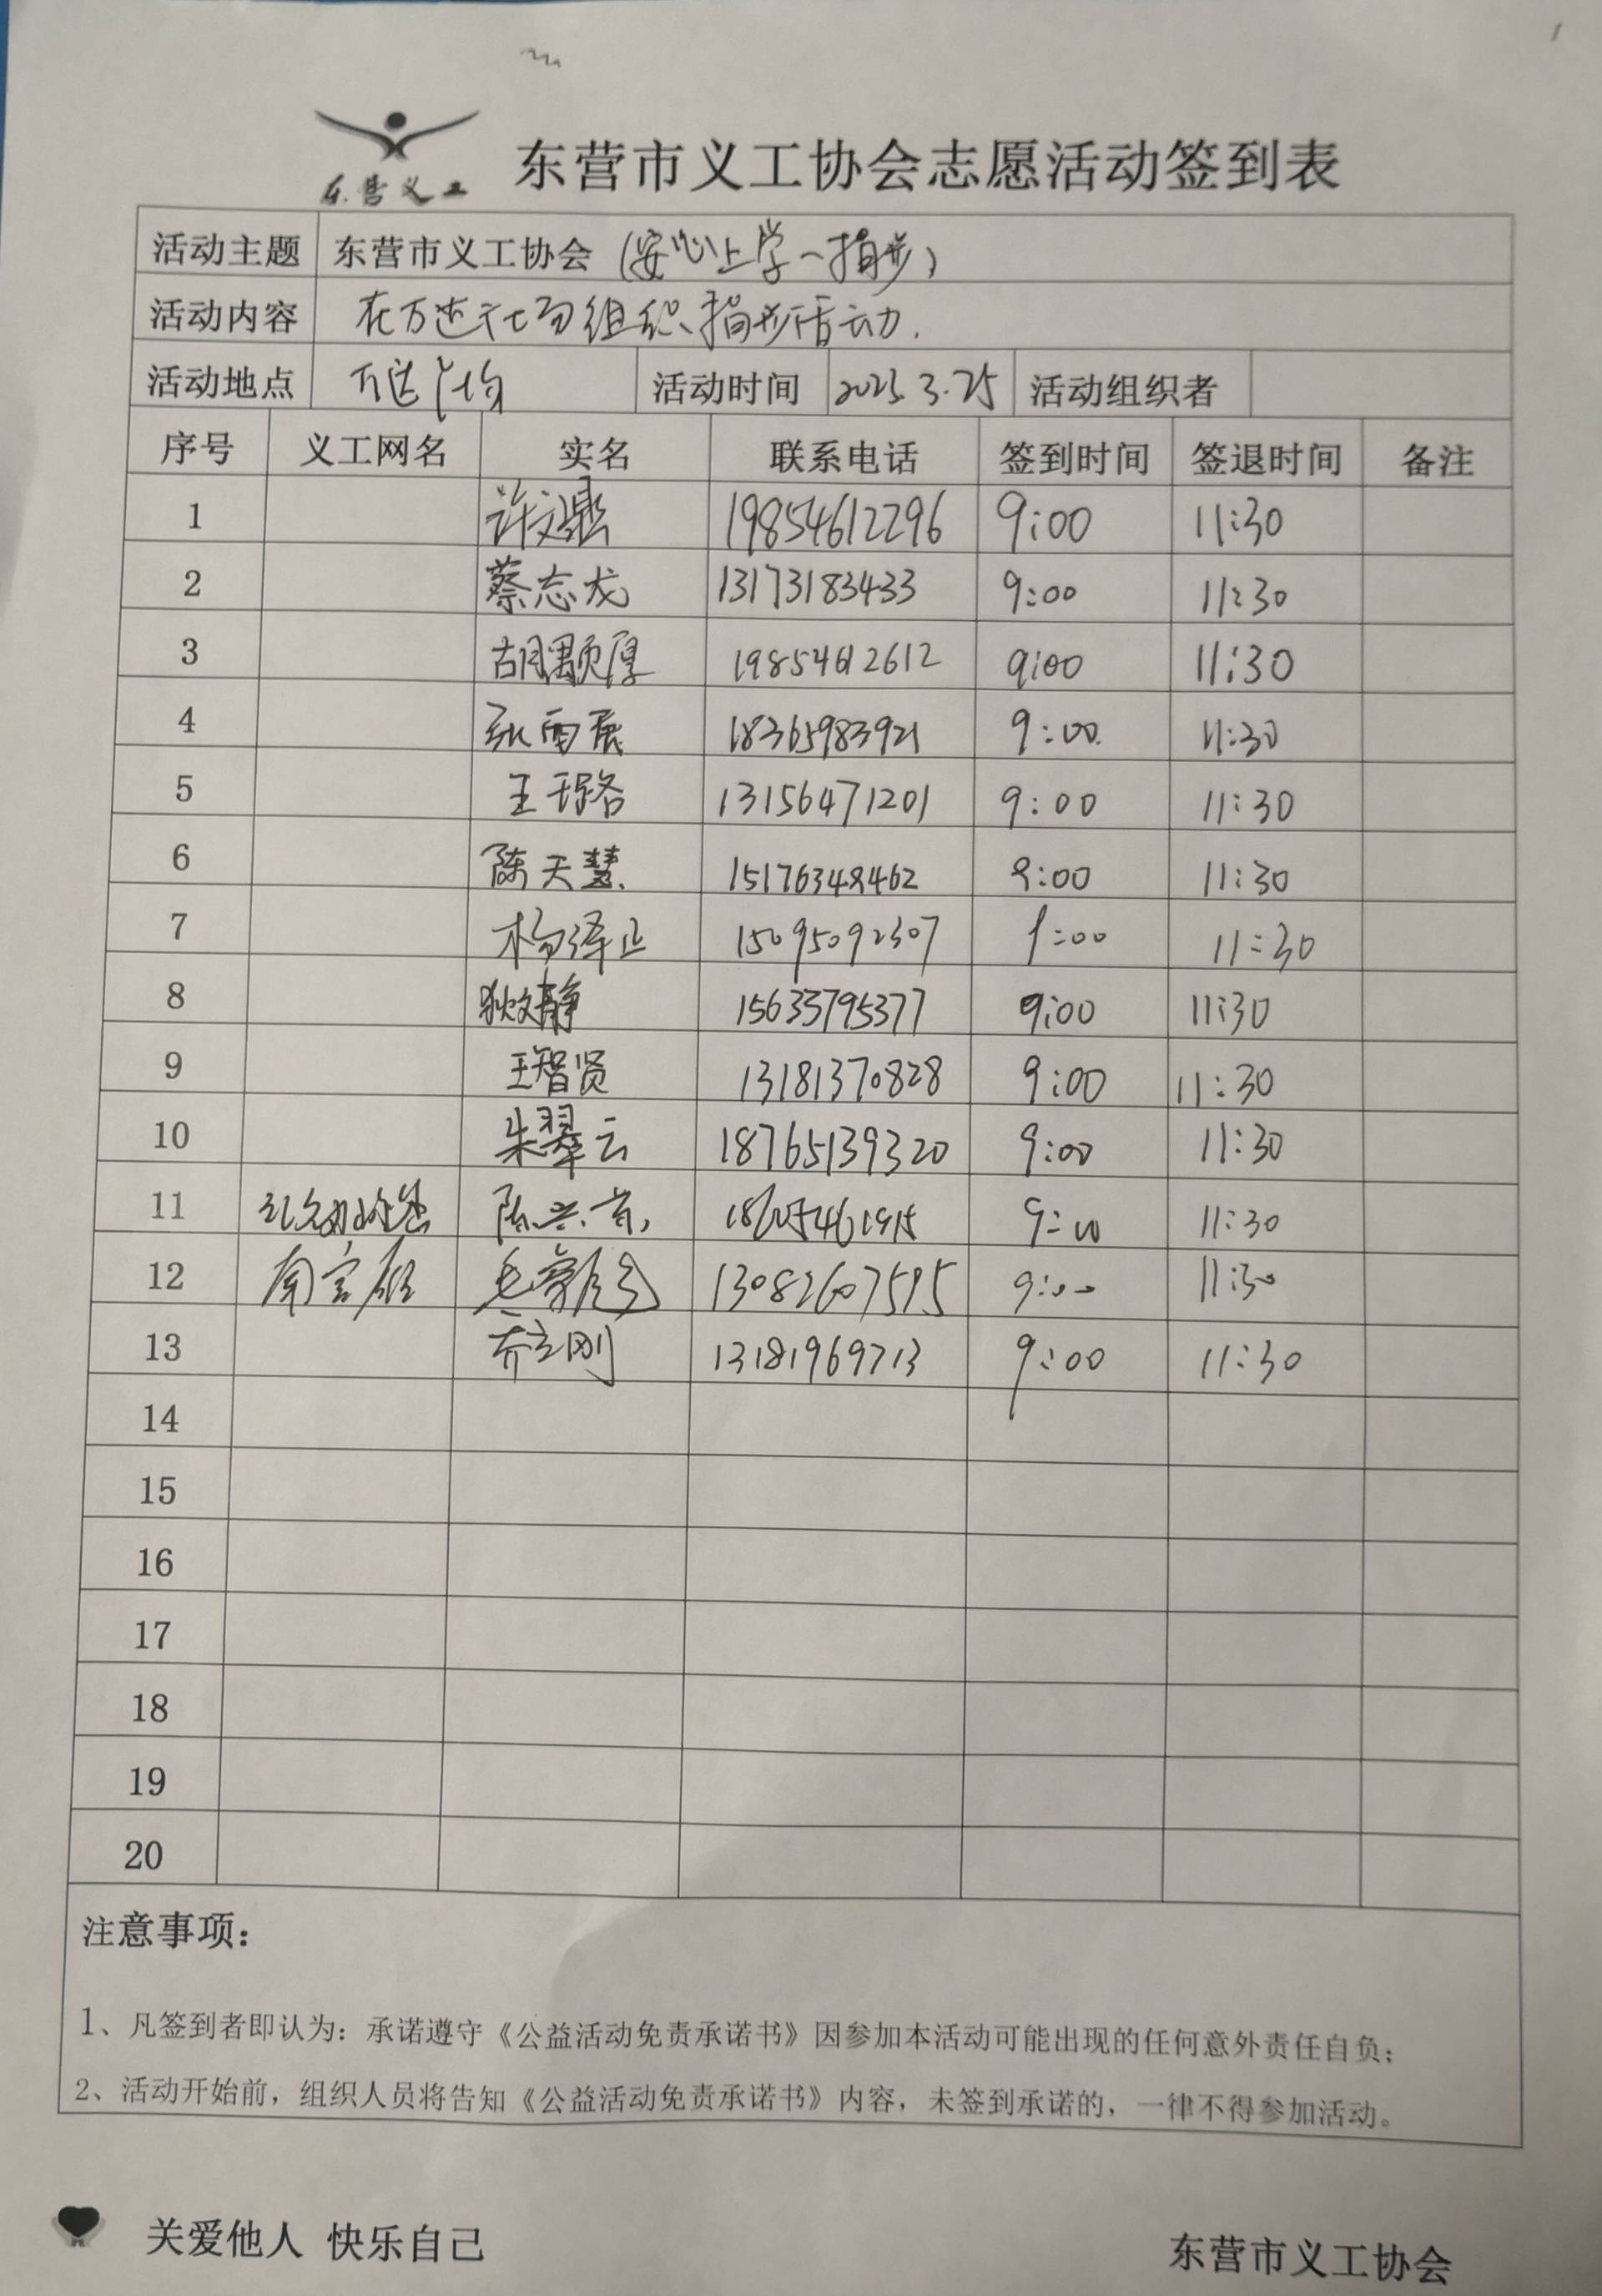 东营义工
东营市义工协会志愿活动签到表
活动主题 东营市义工协会（安心上学一捐步）
活动内容 在万达广场组织捐步活动.
活动地点 万达广场 活动时间 2023.3.25 活动组织者
序号 义工网名 实名 联系电话 签到时间 签退时间 备注
1 许文鼎 19854612296 9:00 11:30
2 蔡志龙 13173183433 9:00 11:30
3 胡顺厚 19854612612 9:00 11:30
4 张雨辰 18365983921 9:00 11:30
5 王璐 13156471201 9:00 11:30
6 陈天慧 15176348462 9:00 11:30
7 杨泽正 15095092307 9:00 11:30
8 狄文静 15635795377 9:00 11:30
9 王智贤 13181370828 9:00 11:30
10 朱翠云 18765139320 9:00 11:30
11 9:00 11:30
12 13082607595 9:00 11:30
13 乔立刚 13181969713 9:00 11:30
14
15
16
17
18
19
20
注意事项：
1、凡签到者即认为：承诺遵守《公益活动免责承诺书》因参加本活动可能出现的任何意外责任自负；
2、活动开始前，组织人员将告知《公益活动免责承诺书》内容，未签到承诺的，一律不得参加活动。
关爱他人 快乐自己
东营市义工协会